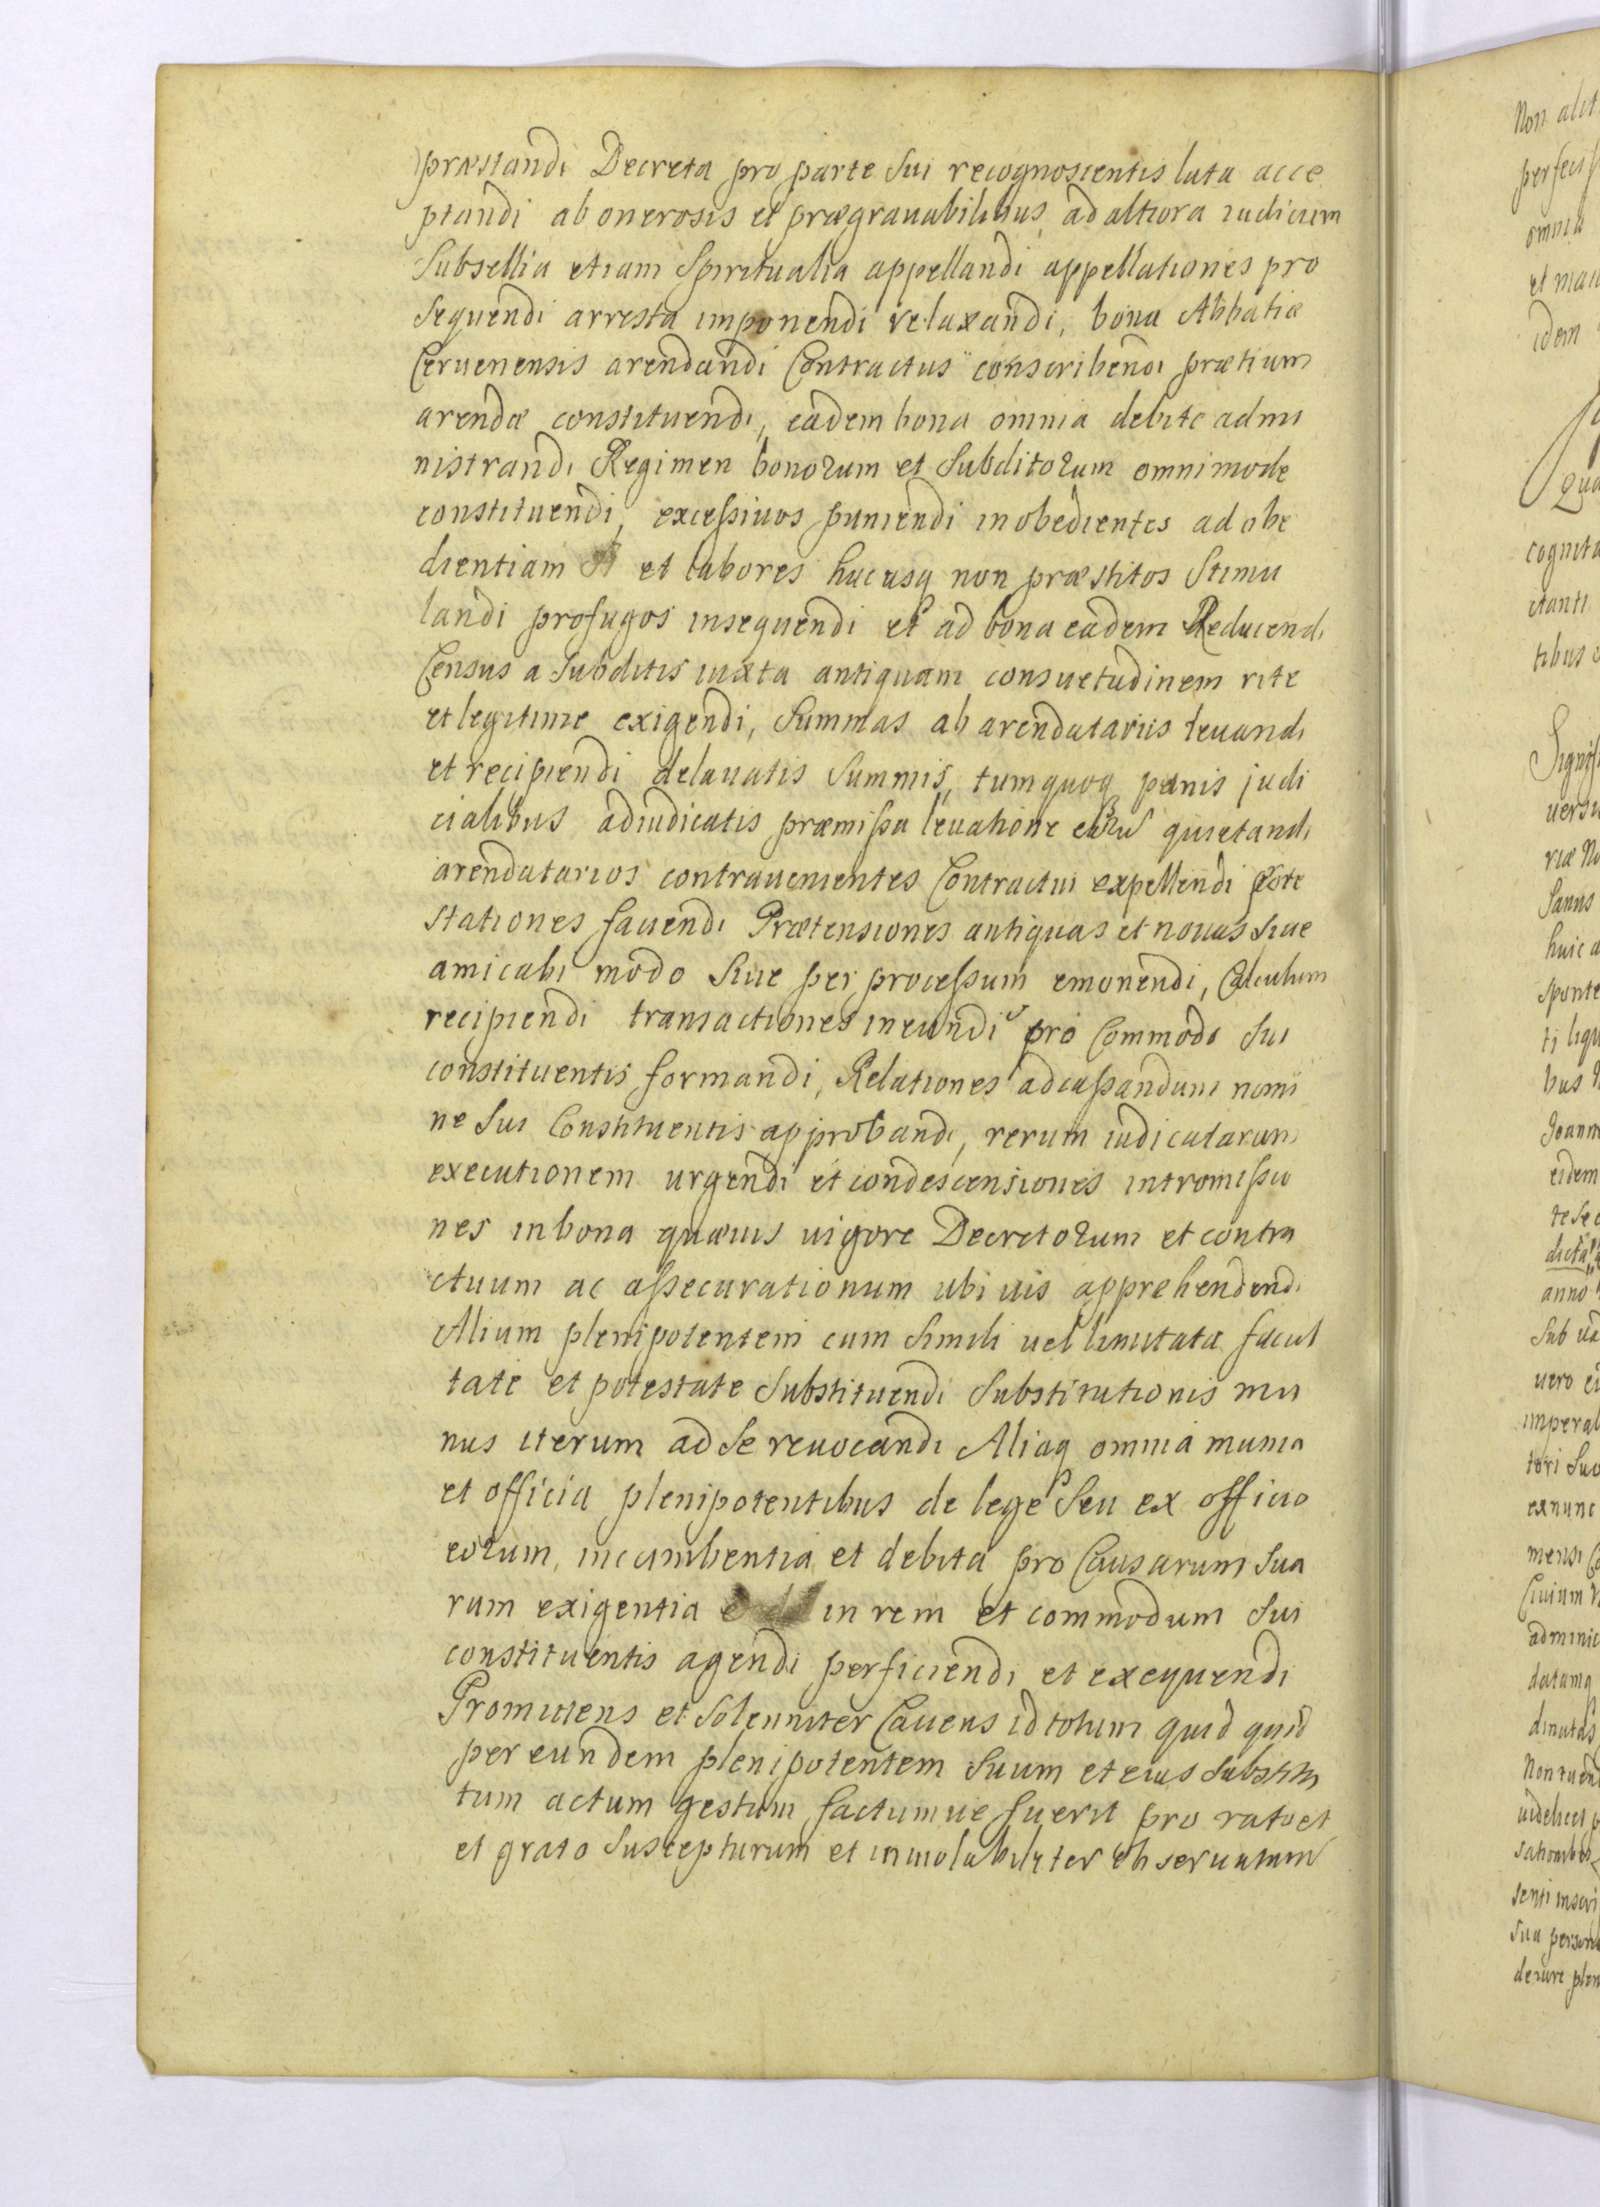 præstandi Decreta pro parte Sui recognoscentis lata acce
ptandi ab onerosis et prægrauabilibus ad altiora iudicium
Subsellia etiam Spiritualia appellandi appellationes pro
sequendi arresta imponendi relaxandi, bona Abbatiæ
Ceruenensis arendandi Contractus conscribendi prætium
arendæ constituendi, eadem bona omnia debite admi
nistrandi Regimen bonorum et Subditorum omnimode
constituendi, excessiuos puniendi inobedientes ad obe
dientiam et labores hucusq non præstitos Stimu
landi profugos insequendi et ad bona eadem Reducendi
Census a Subditis iuxta antiquam consuetudinem rite
et legitime exigendi, Summas ab arendatariis leuandi
et recipiendi delauatis Summis, tum quoq pænis judi
cialibus adiudicatis præmissa leuatione quietandi
arendatarios contrauenientes Contractui expellendi
stationes fauendi Prætensiones antiquas et nouas siue
amicabi modo Siue per processum emonendi, Calculum
recipiendi transactiones ineundi pro Commodo Sui
constituentis formandi, Relationes ad cassandum nomi
ne Sui Constituentis approbandi, rerum iudicatarum
executionem urgendi et condescensiones intromissio
nes in bona quæuis uigore Decretorum et contra
ctuum ac assecurationum ubi uis apprehendendi
Alium plenipotentem cum Simili uel limitata facul
tate et potestate Substituendi Substitutionis mu
nus iterum ad Se reuocandi Aliaq omnia munia
et officia plenipotentibus de lege Seu ex officio
eorum, incumbentia et debita pro Causarum Sua
rum exigentia in rem et commodum Sui
constituentis agendi perficiendi et exequendi
Promittens et Solenniter Cauens id totum quid quid
per eundem plenipotentem Suum et eius Substitu
tum actum gestum factumue fuerit pro rato et
et grato Suscepturum et inuiolabiliter obseruaturum
Non alit
perfec
omnia
et man
idem
Qua
cognita
ctanti
tibus
Signif
uersi
riæ No
Sanus
huic a
sponte
ti liqu
bus
Joann
eidem
te se
dicta
anno
Sub
uero ei
imperal
tori Suo
exnunc
mensi
Ciuium
adminic
datamq
dinutas
Non tuend
uidelicet p
sationibus
senti inscri
Sua person
de iure plen